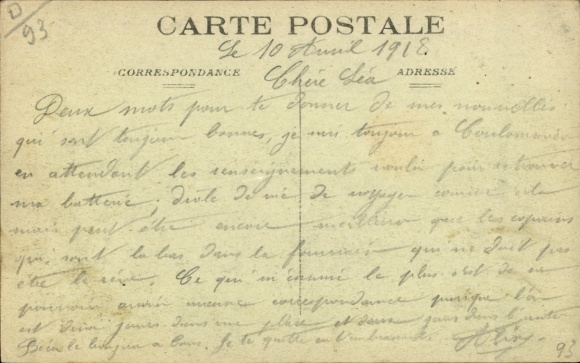 93
CARTE POSTALE
Le 10 Avril 1918
CORRESPONDANCE
ADRESSE
Chère Léa
Deux mots pour te donner de mes nouvelles
qui sont toujours bonnes, je suis toujours a
en attendant les renseignements voulu pour retrouver
ma batterie, drôle de vie de voyager comme cela
mais peut être encore meilleur que les copains
qui sont la bas dans la qui ne doit pas
être le rêve. Ce qui m'ennuie le plus c'est de ne
pouvoir avoir aucune correspondance puisque l'on
est deux jours dans une place et deux jours dans l'autre
Bien le bonjour a tous. Je te quitte en t'embrassant.
93